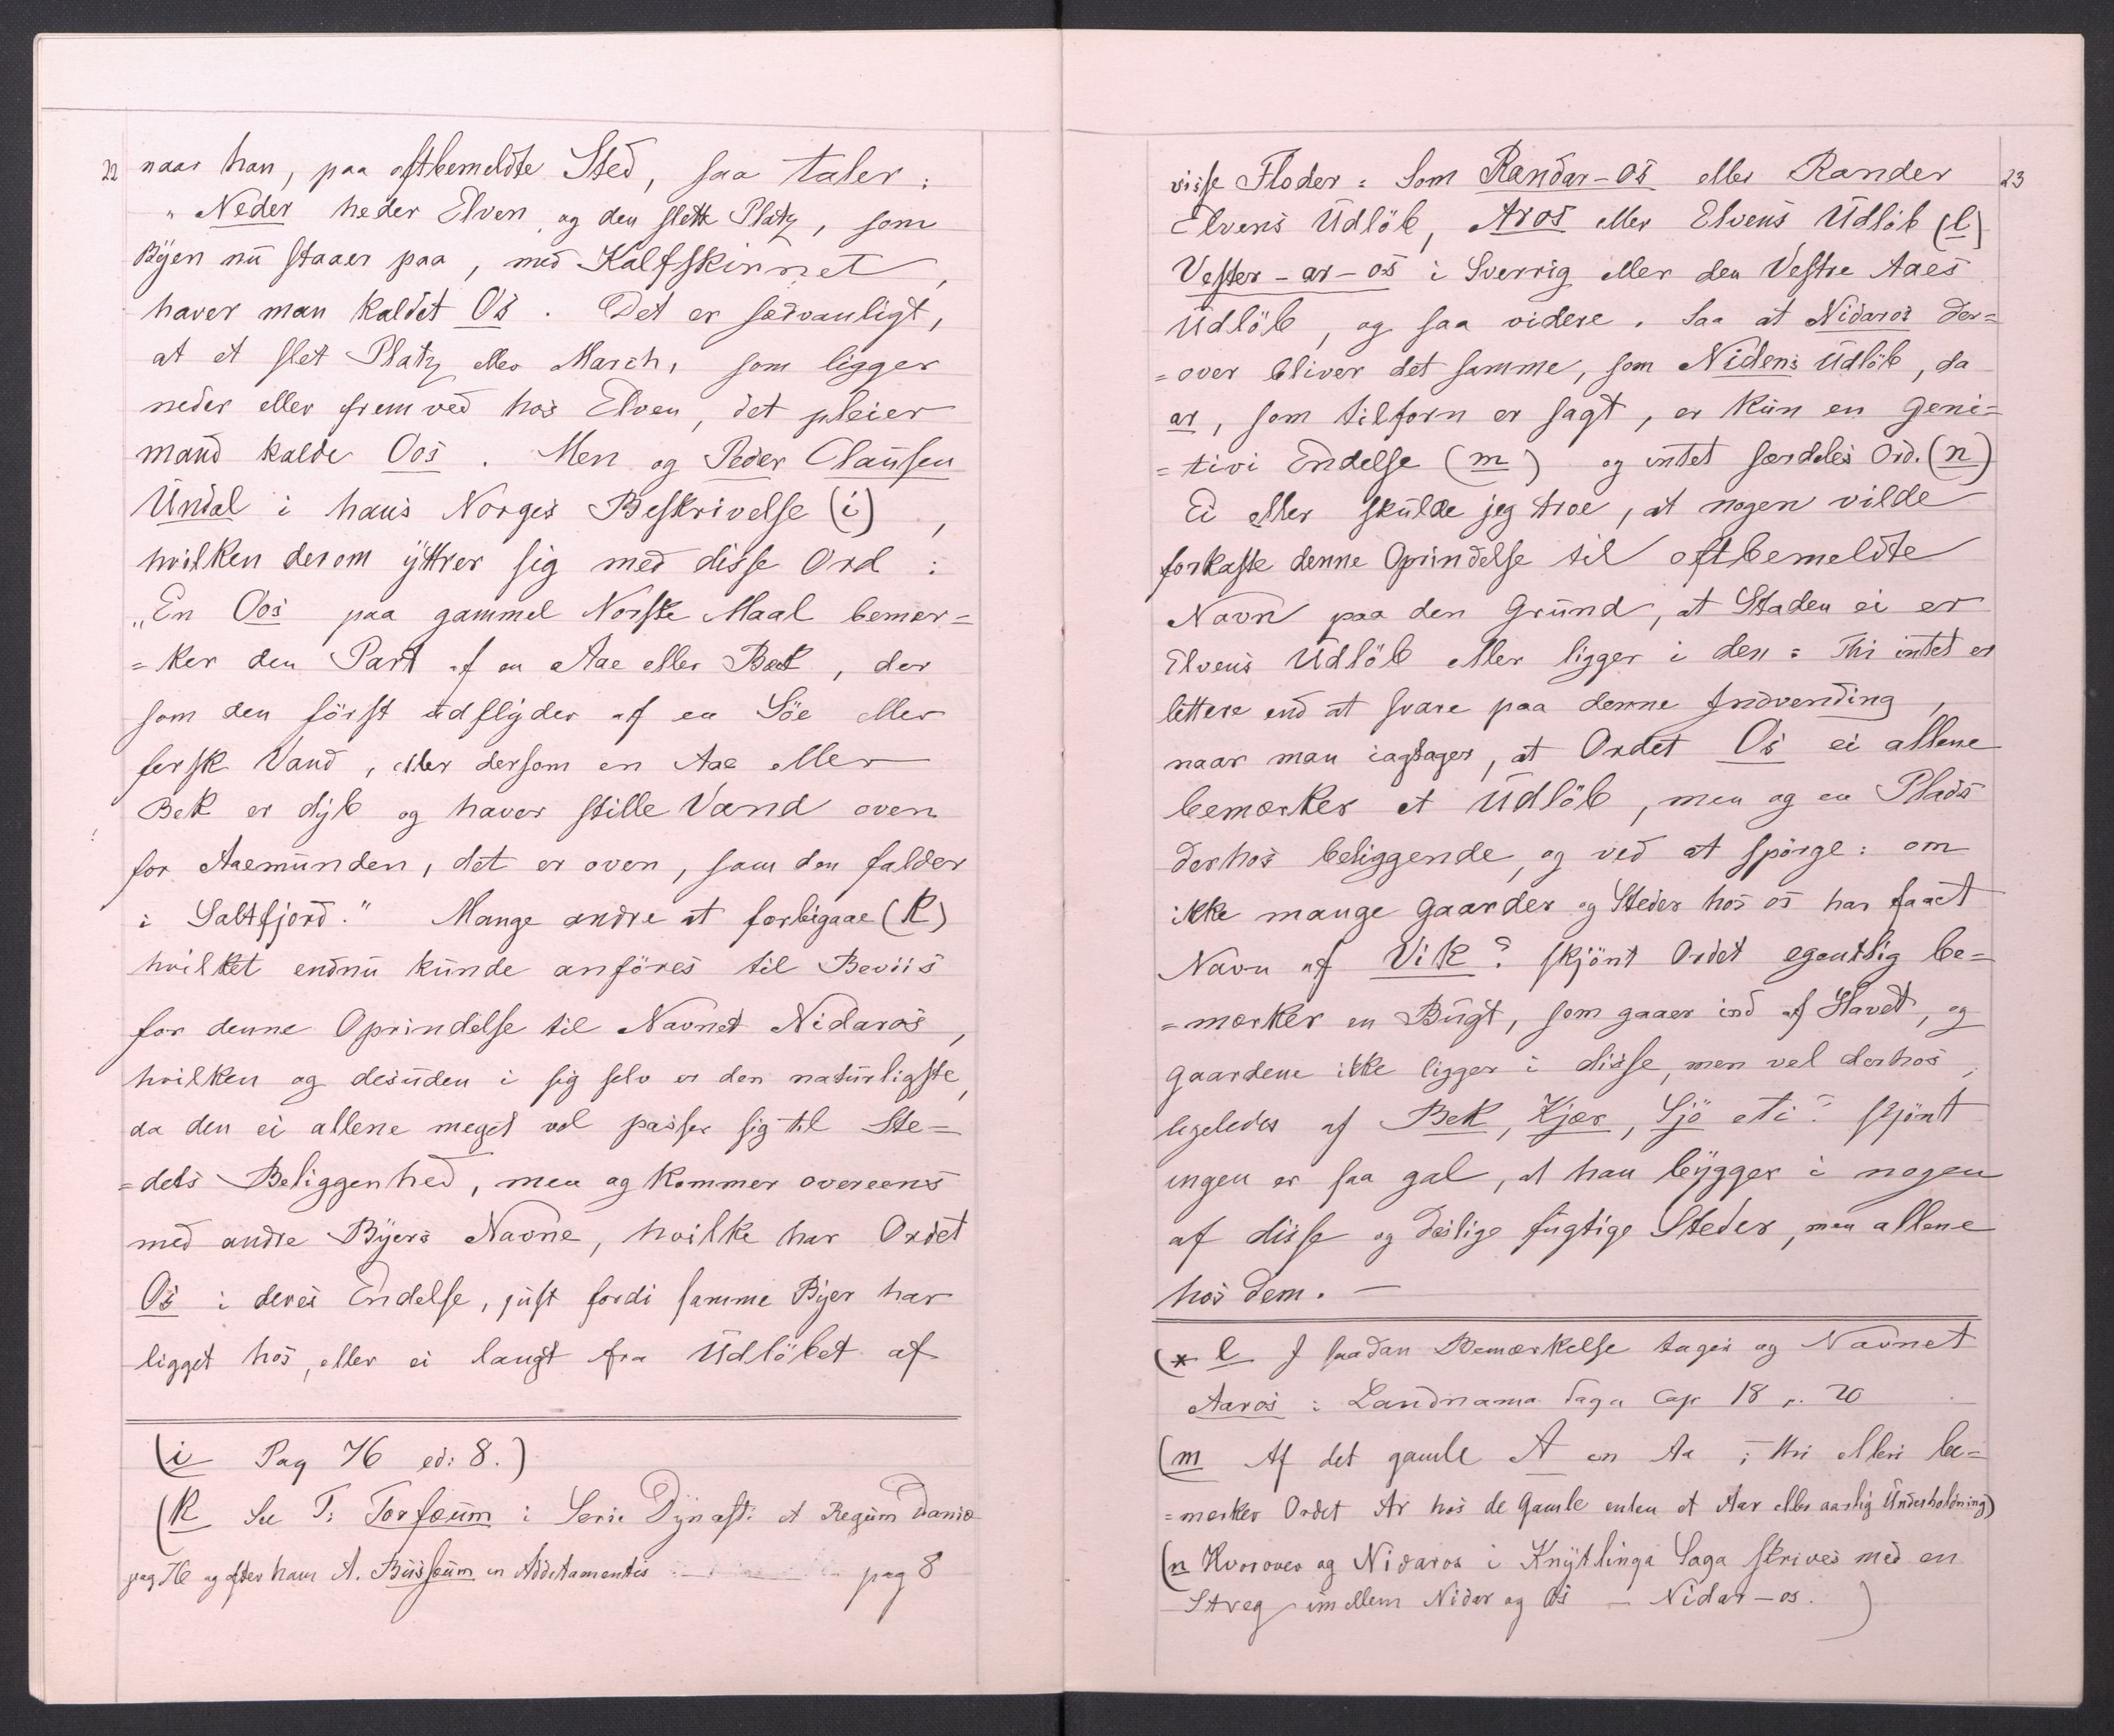 22
naar han, paa oftbemeldte Sted, saa taler:
„Neder heder Elven, og den slette Platz, som
Byen nu staaer paa, med Kalfskinnet,
haver man kaldet Os. Det er sædvanligt,
at et slet Platz eller March, som ligger
neder eller frem ved hos Elven, det pleier
mand kalde Oos. Men og Peder Clausen
Undal i hans Norges Beskrivelse (i),
hvilken derom yttrer sig med disse Ord:
„En Oos paa gammel Norske Maal bemer=
=ker den Part af en Aae eller Bæk, der
som den först udflyder af en Söe eller
fersk Vand, eller dersom en Aae eller
Bek er dyb og haver stille Vand oven
for Aaemunden, det er oven, som den falder
i Saltfjord." Mange andre at forbigaae (k)
hvilket endnu kunde anföres til Beviis
for denne Oprindelse til Navnet Nidaros,
hvilken og desuden i sig selv er den naturligste,
da den ei allene meget vel passer sig til Ste=
=dets Beliggenhed, men og kommer overeens
med andre Byers Navne, hvilke har Ordet
Os i deres Endelse, just fordi samme Byer har
ligget hos, eller ei langt fra Udlöbet af
(i Pag 76 ed: 8.)
(k See T: Torfæum i Serie Dynast: et Regum Daniæ
pag 76 og efter ham A. Bussæum in Additamentis pag 8
23
visse Floder: Som Randar-os eller Rander
Elvens Udlöb, Aros eller Elvens Udlöb (l)
Vester-ar-os i Sverrig eller den Vestre Aaes
Udlöb, og saa videre. Saa at Nidaros der=
=over bliver det samme, som Nidens Udlöb, da
ar, som tilforn er sagt, er kun en Geni=
=tivi Endelse (m) og intet særdeles Ord. (n)
Ei eller skulde jeg troe, at nogen vilde
forkaste denne Oprindelse til oftbemeldte
Navn paa den Grund, at Staden ei er
Elvens Udlöb eller ligger i den: Thi intet er
lettere end at svare paa denne Indvending,
naar man iagtager, at Ordet Os ei allene
bemærker et Udlöb, men og en Plads
derhos beliggende, og ved at spörge: om
ikke mange Gaarder og Steder hos os har faaet
Navn af Vik? skjönt Ordet egentlig be=
=mærker en Bugt, som gaaer ind af Havet, og
Gaardene ikke ligger i disse, men vel derhos,
ligeledes af Bek, Kjær, Sjö etc? skjönt
ingen er saa gal, at han bygger i nogen
af disse og deslige fugtige Steder, men allene
hos dem. —
(* l I saadan Bemærkelse tages og Navnet
Aaros i Landnama Saga Cap 18 p. 20
(m Af det gamle A en Aa; thi ellers be=
=mærker Ordet Ar hos de Gamle enten et Aar eller aarlig Underholdning)
(n Hvorover og Nidaros i Knytlinga Saga skrives med en
Streg imellem Nidar og Os — Nidar-os.)